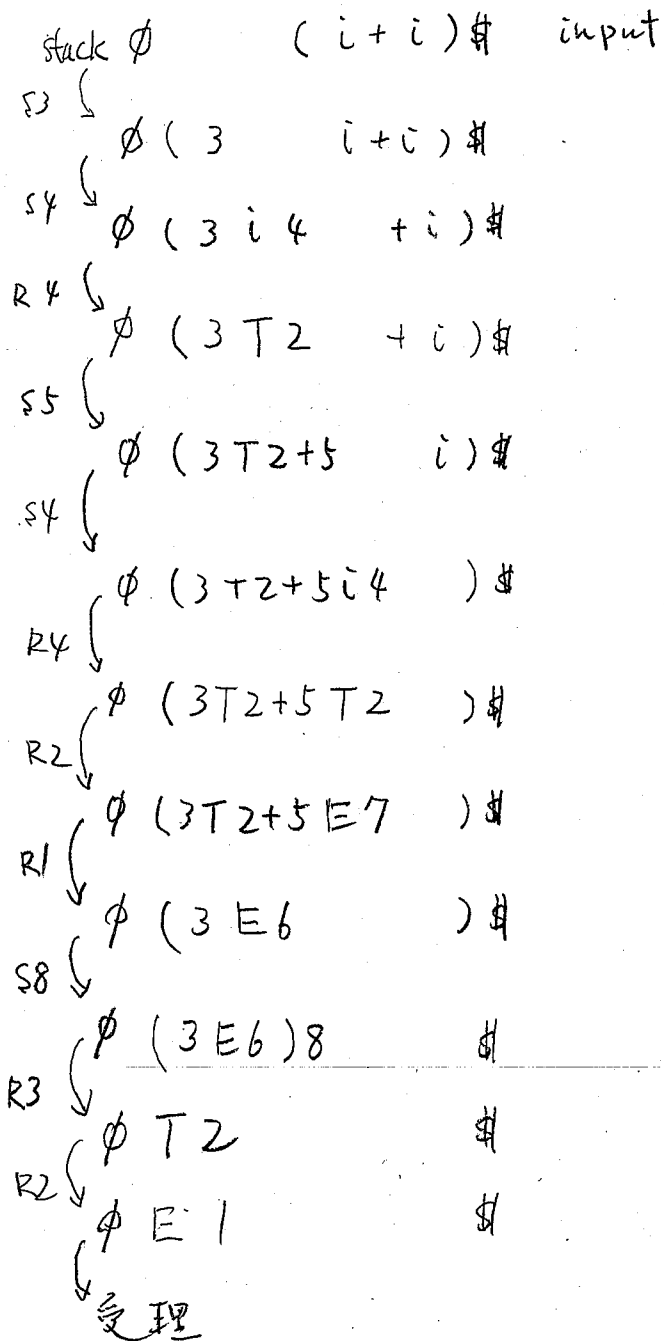 stack ∅ (i+i)$ input
S3
∅(3 i+i)$
S4
∅(3i4 +i)$
R4
∅(3T2 +i)$
S5
∅(3T2+5 i)$
S4
∅(3T2+5i4 )$
R4
∅(3T2+5T2 )$
R2
∅(3T2+5E7 )$
R1
∅(3E6 )$
S8
∅(3E6)8 $
R3
∅T2 $
R2
∅E1 $
受理